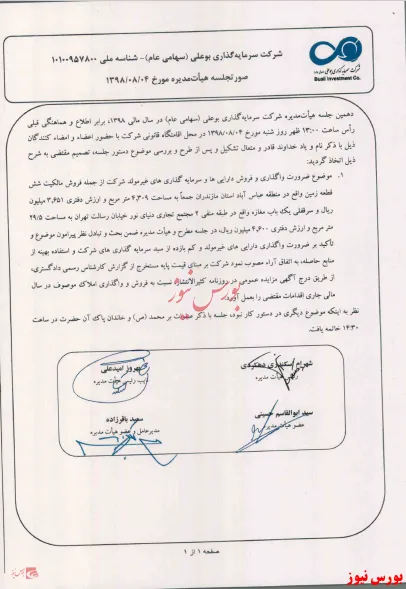 شرکت سرمایه گذاری بوعلی (سهامی عام) - شناسه ملی ۱۰۱۰۰۹۵۷۸۰۰
صورتجلسه هیأت‌مدیره مورخ ۱۳۹۸/۰۸/۰۴
شرکت سرمایه گذاری بوعلی
Buali Investment Co.
دهمین جلسه هیأت‌مدیره شرکت سرمایه گذاری بوعلی (سهامی عام) در سال مالی ۱۳۹۸، برابر اطلاع و هماهنگی قبلی
رأس ساعت ۱۳:۰۰ ظهر روز شنبه مورخ ۱۳۹۸/۰۸/۰۴ در محل اقامتگاه قانونی شرکت با حضور اعضاء و امضاء کنندگان
ذیل با ذکر نام و یاد خداوند قادر و متعال تشکیل و پس از طرح و بررسی موضوع دستور جلسه، تصمیم مقتضی به شرح
ذیل اتخاذ گردید:
۱. موضوع ضرورت واگذاری و فروش دارایی ها و سرمایه گذاری های غیرمولد شرکت از جمله فروش مالکیت شش
قطعه زمین واقع در منطقه عباس آباد استان مازندران جمعاً به مساحت ۴,۳۰۹ متر مربع و ارزش دفتری ۳,۶۵۱ میلیون
ریال و سرقفلی یک باب مغازه واقع در طبقه منفی ۲ مجتمع تجاری دنیای نور خیابان رسالت تهران به مساحت ۲۹/۵
متر مربع و ارزش دفتری ۴,۶۰۰ میلیون ریال، در جلسه مطرح و هیأت مدیره ضمن بحث و تبادل نظر پیرامون موضوع و
تأکید بر ضرورت واگذاری دارایی های غیرمولد و کم بازده از سبد سرمایه گذاری های شرکت و استفاده بهینه از
منابع حاصله، به اتفاق آراء مصوب نمود شرکت بر مبنای قیمت پایه مستخرج از گزارش کارشناس رسمی دادگستری،
از طریق درج آگهی مزایده عمومی در روزنامه کثیرالانتشار، نسبت به فروش و واگذاری املاک موصوف در سال
مالی جاری اقدامات مقتضی را بعمل آورد.
نظر به اینکه موضوع دیگری در دستور کار نبود، جلسه با ذکر صلوات بر محمد (ص) و خاندان پاک آن حضرت در ساعت
۱۴:۳۰ خاتمه یافت.
بورس نیوز
شهرام
بهروز امیدعلی
رئیس هیأت مدیره
نایب رئیس هیأت مدیره
سید ابوالقاسم حسینی
سعید باقرزاده
عضو هیأت مدیره
مدیرعامل و عضو هیأت مدیره
صفحه ۱ از ۱
بورس نیوز
بورس نیوز